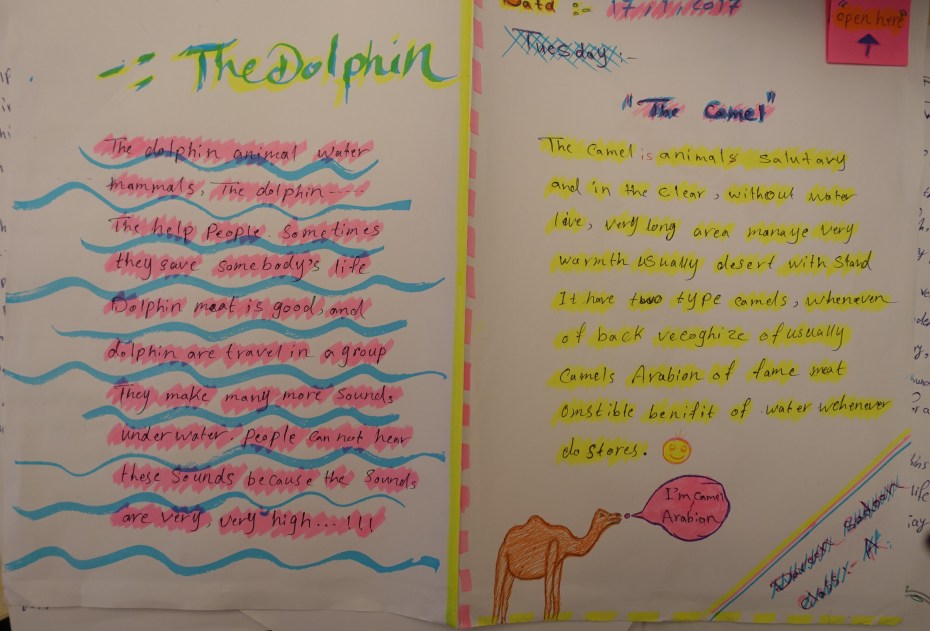 -: The Dolphin
The dolphin animal water
mammals, The dolphin ----
The help People. Sometimes
they save somebody's life
Dolphin meat is good, and
dolphin are travel in a group
They make many more sounds
underwater. People can not hear
these Sounds because the Sounds
are very, very high...!!!
Data :- 17, 1, 2017
Tuesday :-
"open here"
"The Camel"
The Camel is animals salutary
and in the clear, without water
live, very long area manaye very
warmth usually desert with stand
It have two type camels, whenever
of back recoghize of usually
Camels Arabion of fame meat
omstible benifit of water wehenever
do stores.
I'm camel
Arabion